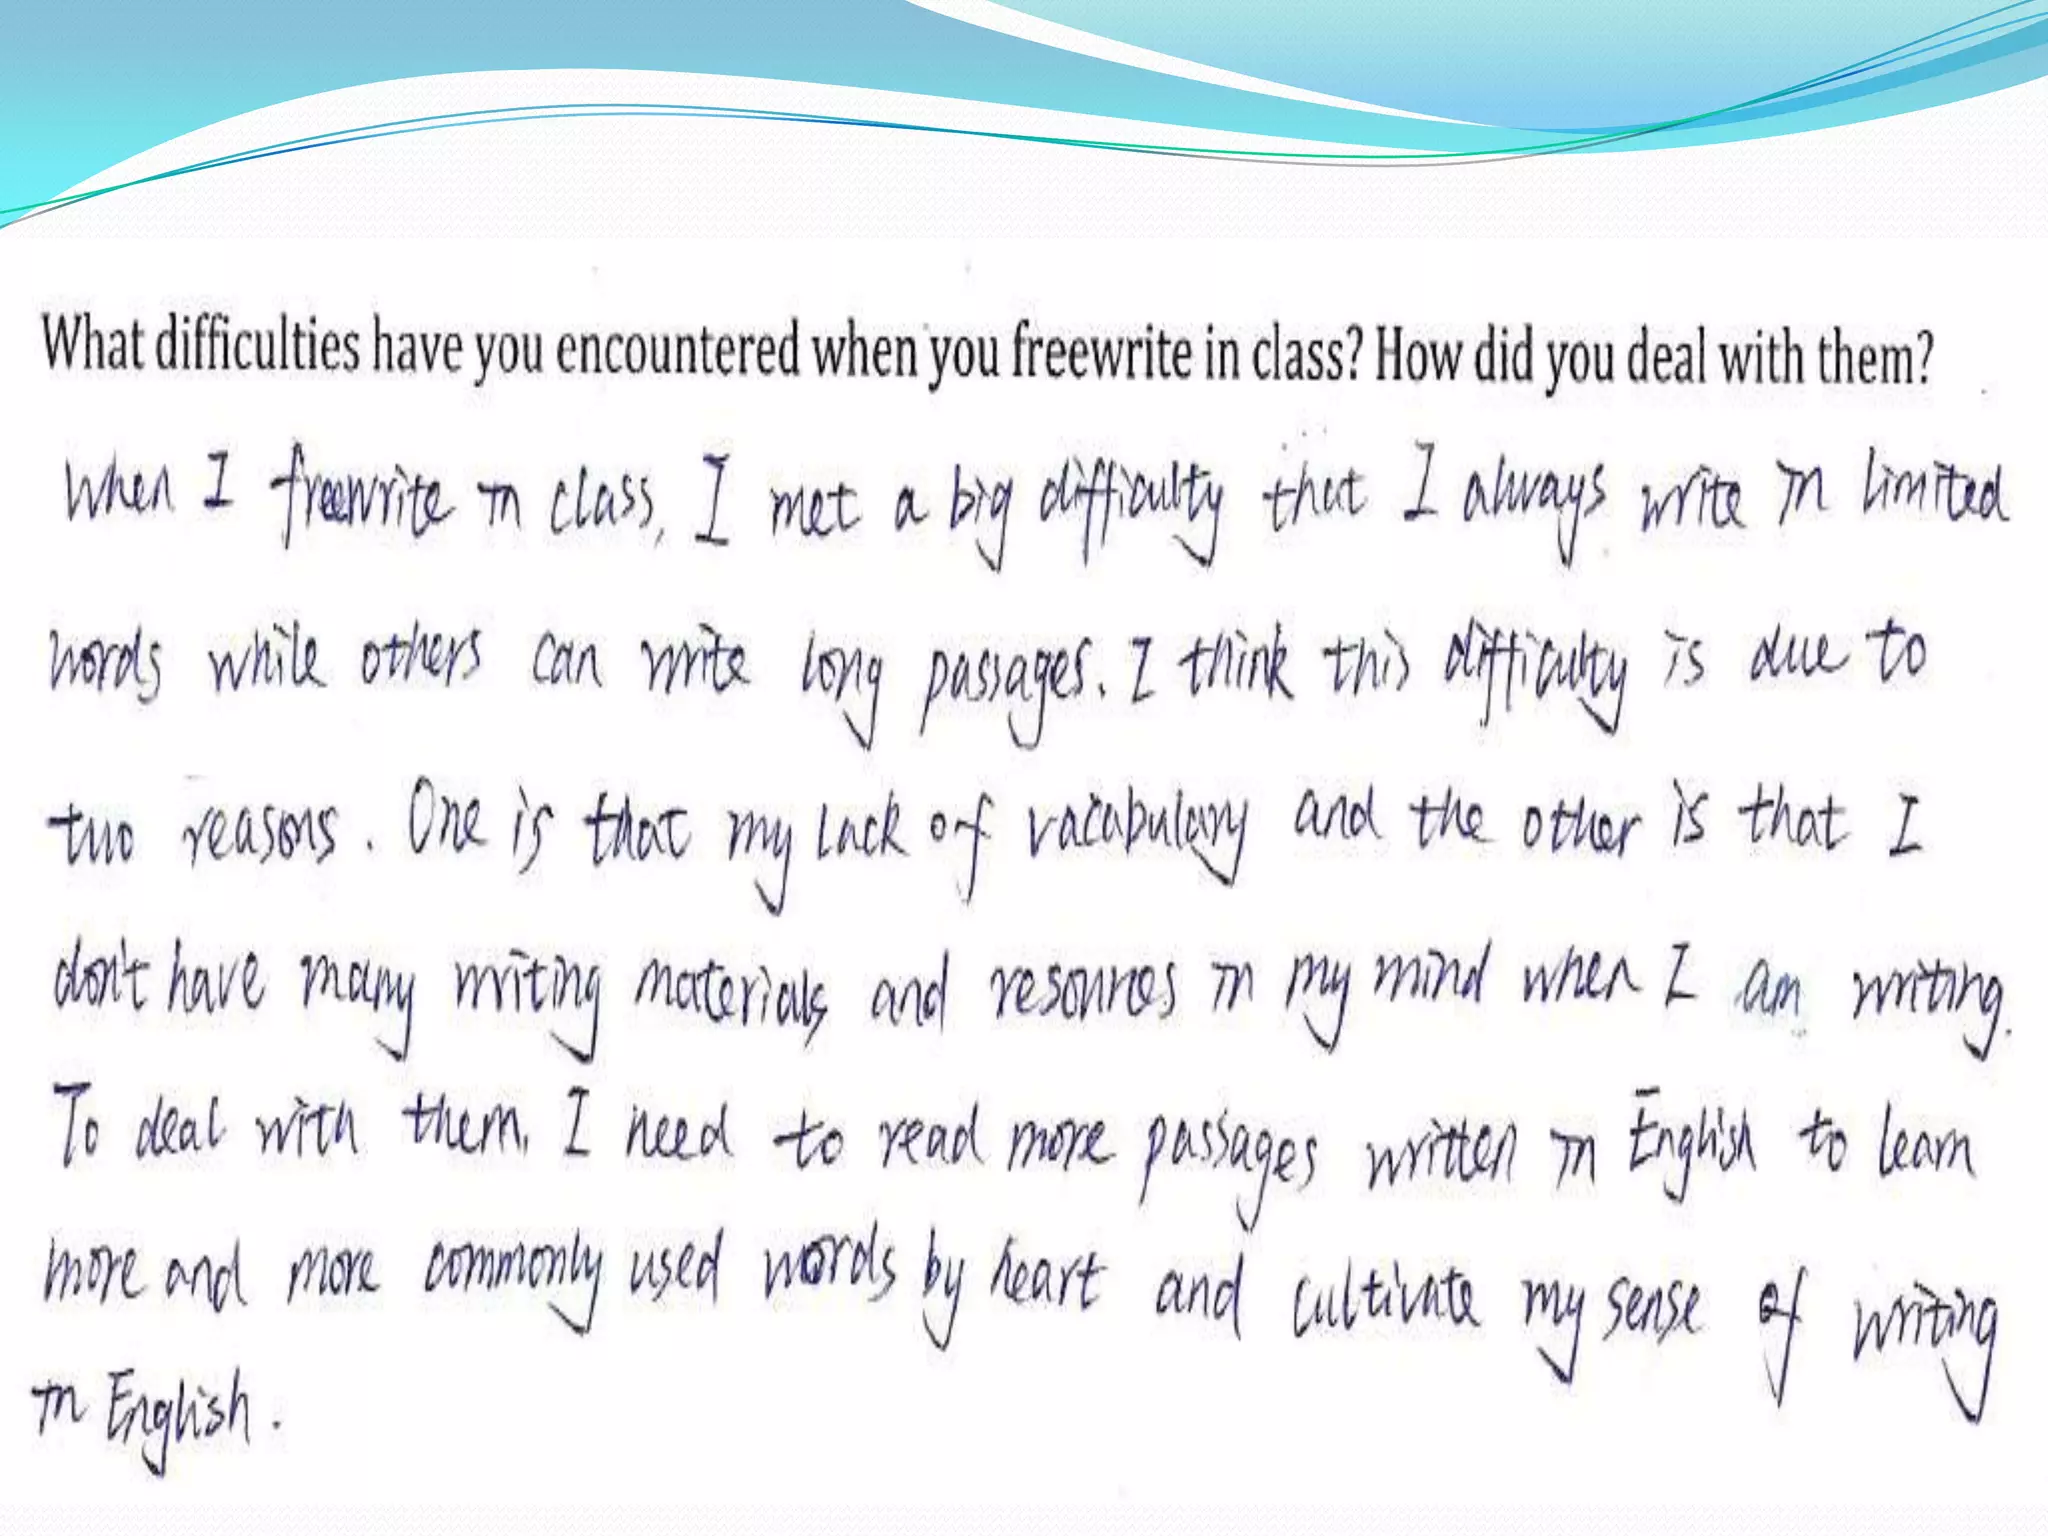 What difficulties have you encountered when you freewrite in class? How did you deal with them?
When I freewrite in class, I met a big difficulty that I always write in limited
words while others can write long passages. I think this difficulty is due to
two reasons. One is that my lack of vocabulary and the other is that I
don't have many writing materials and resources in my mind when I am writing.
To deal with them, I need to read more passages written in English to learn
more and more commonly used words by heart and cultivate my sense of writing
in English.